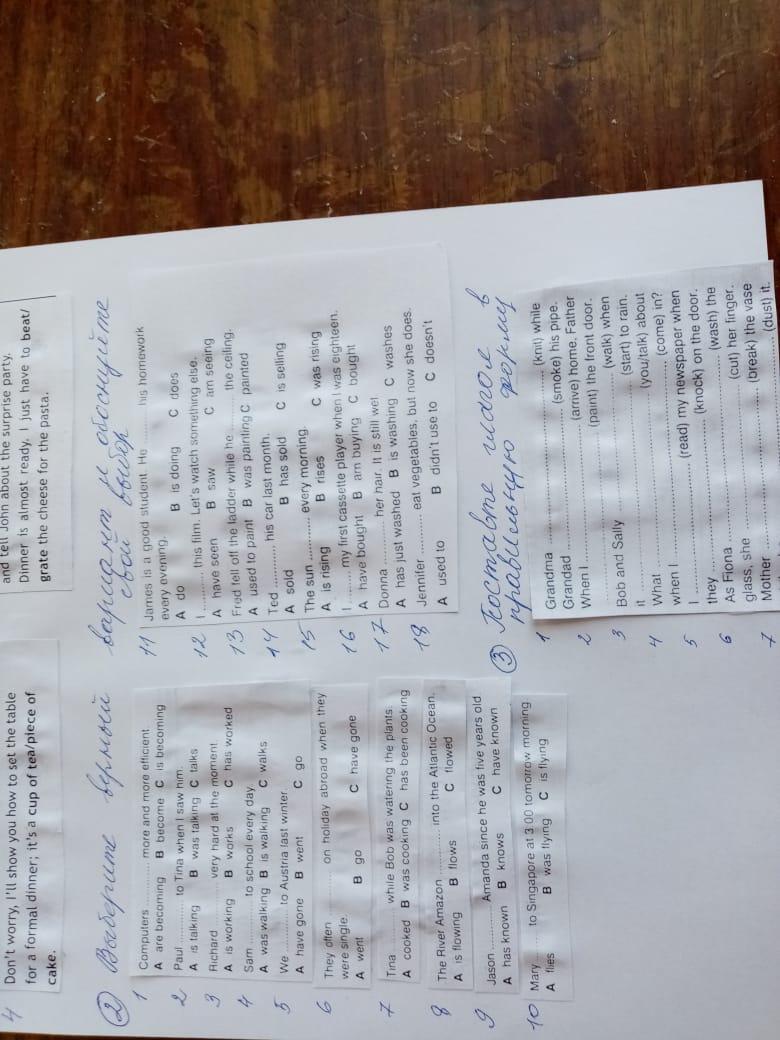 4 Don't worry, I'll show you how to set the table
for a formal dinner; it's a cup of tea/piece of
cake.
and tell John about the surprise party.
Dinner is almost ready. I just have to beat/
grate the cheese for the pasta.
② Выберите верный вариант и обоснуйте
свой выбор
1 Computers .......... more and more efficient.
A are becoming B become C is becoming
2 Paul .......... to Tina when I saw him.
A is talking B was talking C talks
3 Richard .......... very hard at the moment.
A is working B works C has worked
4 Sam .......... to school every day.
A was walking B is walking C walks
5 We .......... to Austria last winter.
A have gone B went C go
6 They often .......... on holiday abroad when they
were single.
A went B go C have gone
7 Tina .......... while Bob was watering the plants.
A cooked B was cooking C has been cooking
8 The River Amazon .......... into the Atlantic Ocean.
A is flowing B flows C flowed
9 Jason .......... Amanda since he was five years old
A has known B knows C have known
10 Mary .......... to Singapore at 3.00 tomorrow morning
A flies B was flying C is flying
11 James is a good student. He .......... his homework
every evening.
A do B is doing C does
12 I .......... this film. Let's watch something else.
A have seen B saw C am seeing
13 Fred fell off the ladder while he .......... the ceiling.
A used to paint B was painting C painted
14 Ted .......... his car last month.
A sold B has sold C is selling
15 The sun .......... every morning.
A is rising B rises C was rising
16 I .......... my first cassette player when I was eighteen.
A have bought B am buying C bought
17 Donna .......... her hair. It is still wet
A has just washed B is washing C washes
18 Jennifer .......... eat vegetables, but now she does.
A used to B didn't use to C doesn't
③ Поставьте глагол в
правильную форму
1 Grandma .......... (knit) while
Grandad .......... (smoke) his pipe.
2 When I .......... (arrive) home, Father
.......... (paint) the front door.
3 Bob and Sally .......... (walk) when
it .......... (start) to rain.
4 What .......... (you/talk) about
when I .......... (come) in?
5 I .......... (read) my newspaper when
they .......... (knock) on the door.
6 As Fiona .......... (wash) the
glass, she .......... (cut) her finger.
7 Mother .......... (break) the vase
.......... (dust) it.